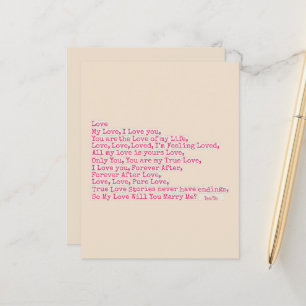 Love
My Love, I Love you,
You are the Love of my Life,
Love, Love, Loved, I'm Feeling Loved,
All my love is yours Love,
Only You, You are my True Love,
I Love you, Forever After,
Forever After Love,
Love, Love, Pure Love,
True Love Stories never have endinks,
So My Love Will You Marry Me?